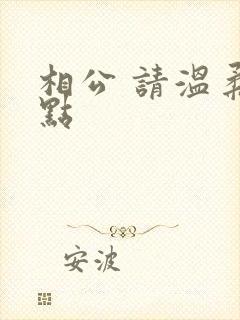 相公 請溫柔
點
安波